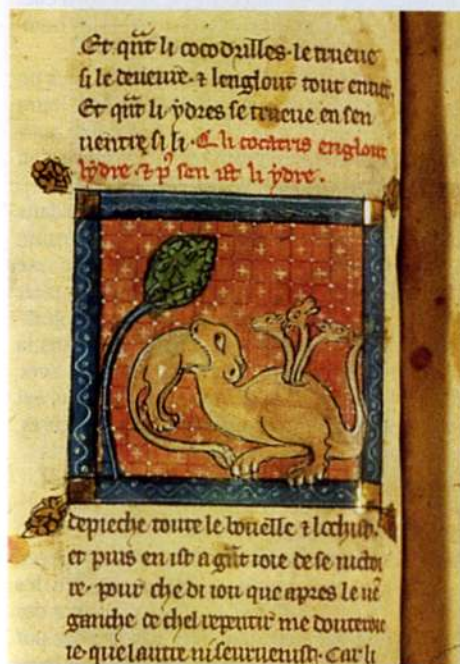 Et qn̄t li cocodrilles · le trueue
si le deueure · ⁊ lenglout tout entier.
Et qn̄t li ydres se trueue en sen
uentre si li · C li cocatris englout
lydre · ⁊ p̄ sen ist li ydre ·
depieche toute le bouelle ⁊ lochist.
et puis en ist a gn̄t ioie de se uictoi
re · pour che di ion que apres le uē
ganche de chel repentir me douteroie
ie · que lautre ni seuruenist · Car li